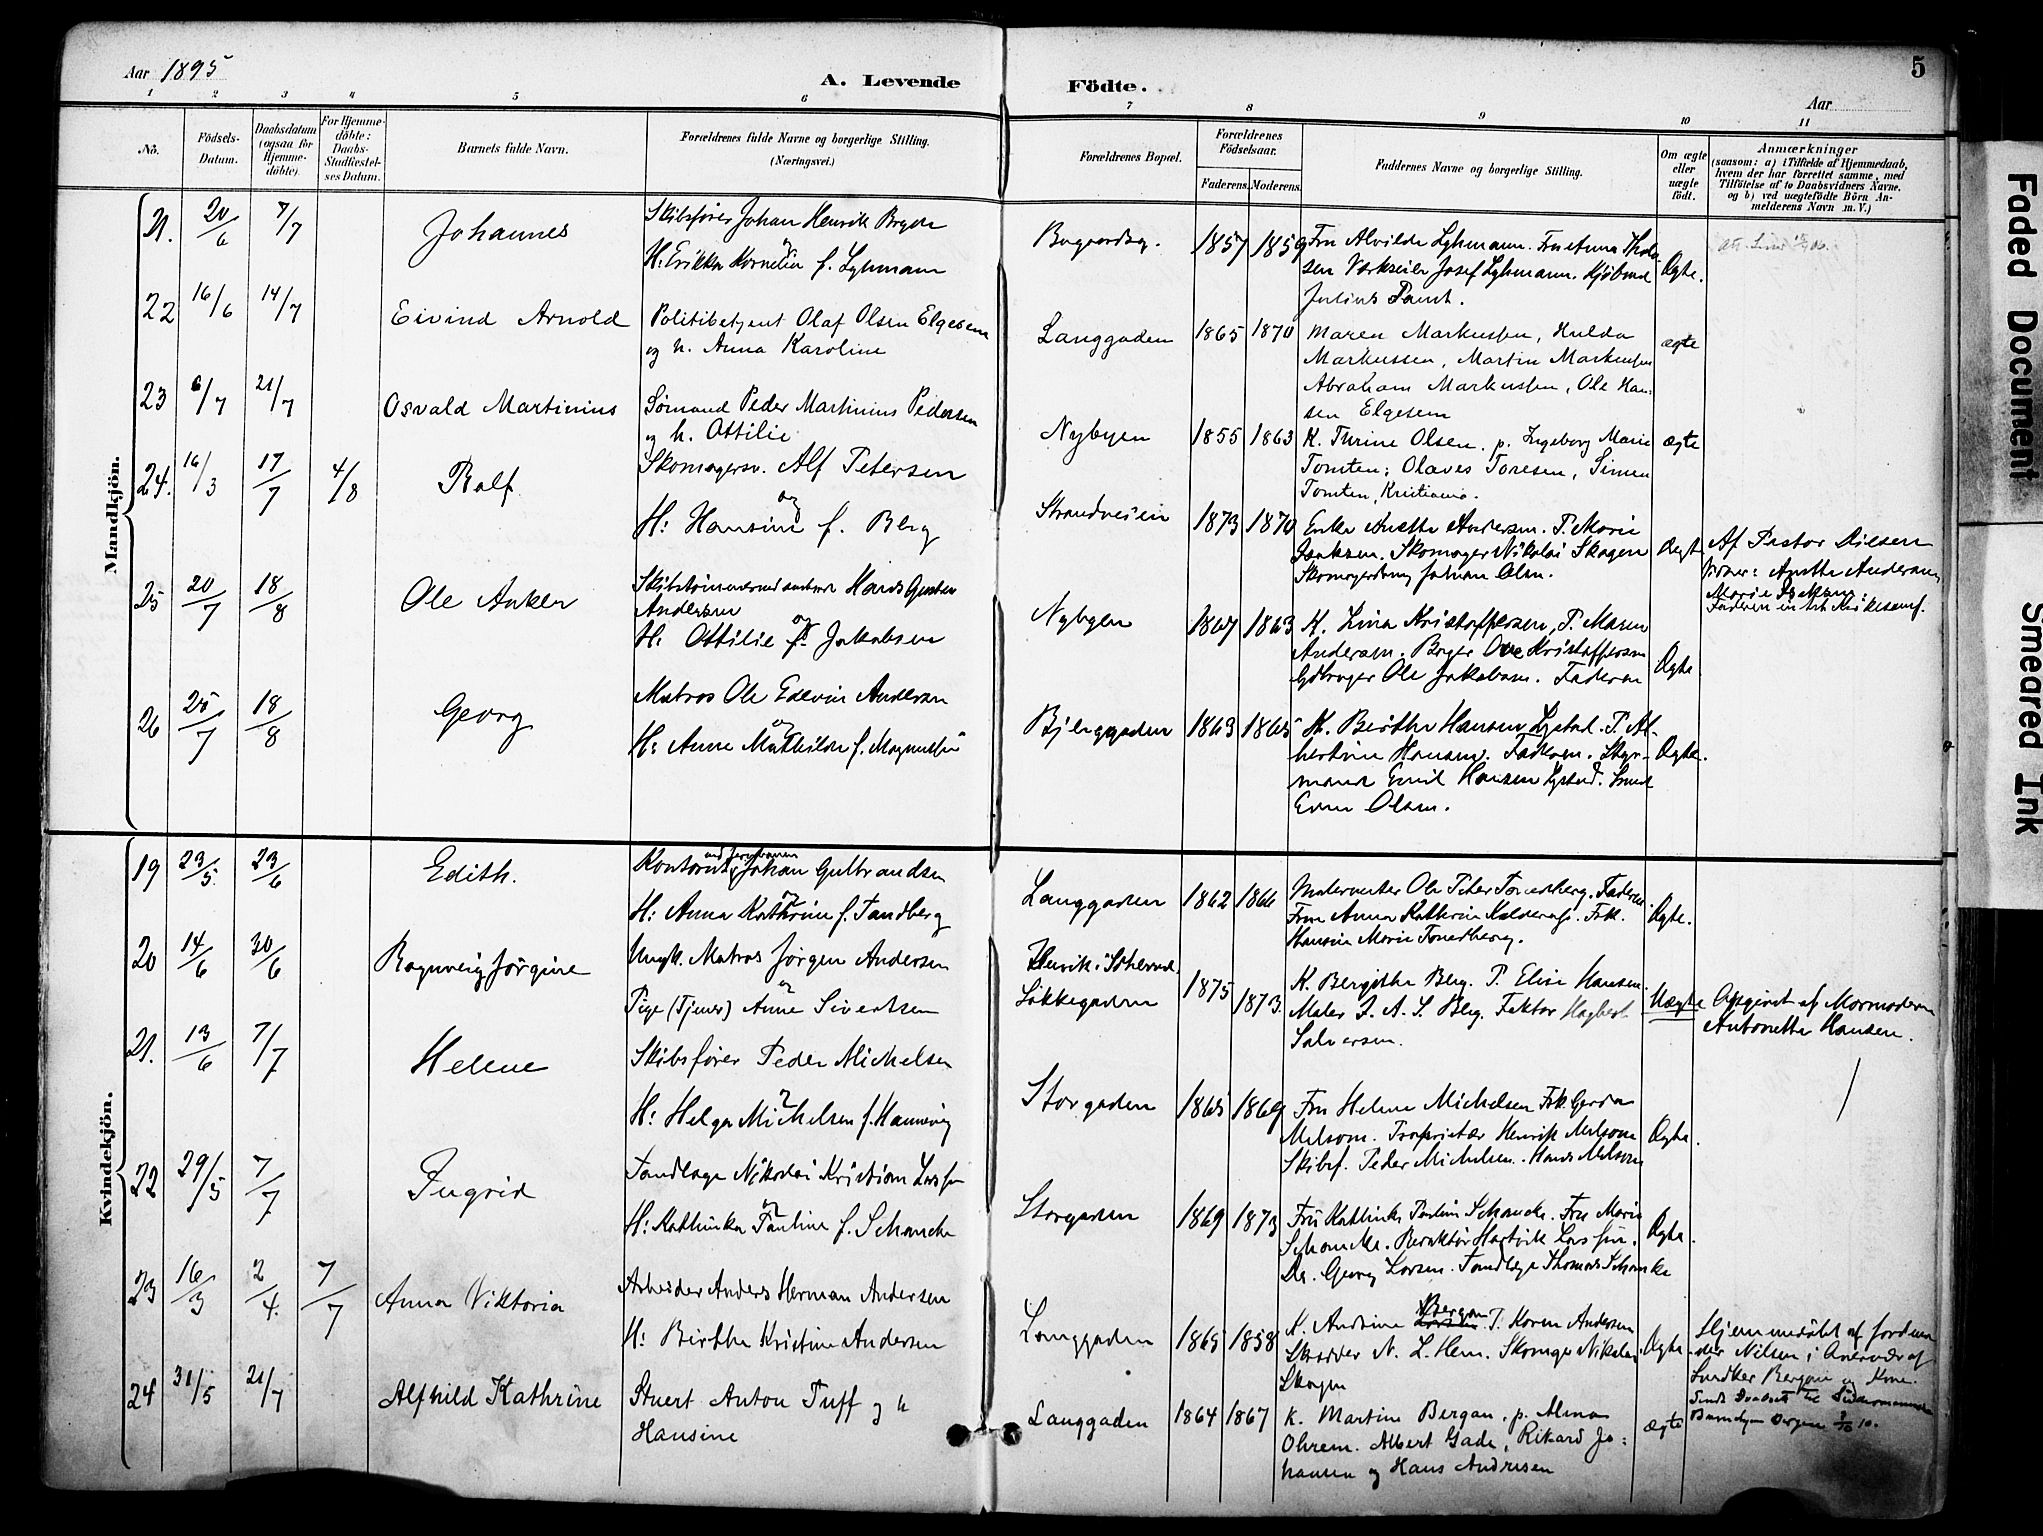 Aar 1895
A. Levende Födte.
5
Aar
1 2 3 4 5 6 7 8 9 10 11
No.
Födsels-Datum.
Daabsdatum (ogsaa for Hjemme-döbte).
For Hjemme-döbte: Daabs-Stadfæstel-ses Datum.
Barnets fulde Navn.
Forældrenes fulde Navne og borgerlige Stilling.
(Næringsvei.)
Forældrenes Bopæl.
Forældrenes Födselsaar.
Faderens. Moderens.
Faddernes Navne og borgerlige Stilling.
Om ægte eller uægte födt.
Anmærkninger
(saasom: a) i Tilfælde af Hjemmedaab,
hvem der har forrettet samme, med
Tilföielse af to Daabsvidners Navne.
og b) ved uægtefödte Börn An-
melderens Navn m. V.)
Mandkjön.
21. 20/6 7/7 Johannes
Skibsfører Johan Henrik Bryde
og
H: Erikka Kornelia f. Lyhmann
1857 1859
Fru Alvilde Lyhmann. Fru Anna
Værkseier Josef Lyhmann.
Julius
Ægte.
22 16/6 14/7 Eivind Arnold
Politibetjent Olaf Olsen Elgesem
og h. Anna Karoline
Langgaden 1865 1870
Maren Markussen, Hulda
Markussen, Martin Markussen
Abraham Markussen, Ole Han-
sen Elgesem
ægte
23 6/7 21/7 Osvald Martinius
Sömand Peder Martinius Pedersen
og h. Ottilie
Nybyen 1855 1863
K. Turine Olsen, p. Ingeborg Marie
Tomten; Olaves Toresen, Simen
Tomten, Kristiania.
ægte
24. 16/3 17/7 4/8 Ralf
Skomagersv. Alf Petersen
og
H: Hansine f. Berg
Strandveien 1873 1870
Enke Anette Andersen. P. Marie
Isaksen. Skomager Nikolai Skagen
Johan Olsen.
Ægte
Af Pastor
Vidner: Anette Andersen,
Marie Isaksen.
25 20/7 18/8 Ole Anker
Hans Gustav
Andersen
og
H: Ottilie f. Jakobsen
Nybyen 1867 1863
K. Lina Kristoffersen, P. Maren
Andersen. Bager Ove Kristoffersen
Ole Jakobsen. Faderen
Ægte.
26 25/7 18/8 Georg
Matros Ole Edevin Andersen
og
H: Anne Mathilde f. Magnussen
Bjerggaden 1863 1865
K. Birthe Hansen Lystad. P. Al-
bertine Hansen. Faderen. Styr-
mand Emil Hansen Lystad. Smed
Even Olsen.
Ægte.
Kvindekjön.
19 23/5 23/6 Edith.
ved Jernbanen
Kontorist Johan Gulbrandsen
og
H: Anna Kathrine f. Tandberg
Langgaden 1862 1866
Malermester Ole Peter Tandberg. Faderen
Fru Anna Kathrine Frk.
Hansine Marie Tandberg.
Ægte.
20 14/6 30/6 Ragnveig Jørgine
Ungk. Matros Jørgen Andersen
og
Pige (Tjener) Anne Sivertsen
Løkkegaden 1875 1873
K. Bergithe Berg. P. Elise Hansen.
Maler J. A. S. Berg. Faktor
Salvesen.
Uægte
Opgivet af Mormoderen
Antonette Hansen.
21. 13/6 7/7 Helene
Skibsfører Peder Michelsen
og
H: Helga Michelsen f. Hannevig
Storgaden 1865 1869
Fru Helene Michelsen Frk. Gerda
Melsom. Proprietær Henrik Melsom
Skibsf. Peder Michelsen. Hans Melsom
Ægte.
22 29/5 7/7 Ingrid
Tandlæge Nikolai Kristian Larssen
og
H: Kathinka Pauline f. Schancke
Storgaden 1869 1873
Fru Kathinka Pauline Schancke. Fru Marie
Schancke. Hartvik Larssen.
Dr. Georg Larsen. Tandlæge Thomas Schancke
Ægte.
23 16/3 2/4 7/7 Anna Viktoria
Arbeider Anders Herman Andersen
H: Birthe Kristine Andersen
Langgaden 1865 1858
K. Andrine Bergan P. Karen Andersen
Skrædder N. L. Hem. Skomager Nikolai
Skagen
Ægte
Hjemmedøbt af Jordmo-
der Nilsen i Nærvær af
Bergan og Kone.
24 31/5 21/7 Alfhild Kathrine
Stuert Anton Tuff og h
Hansine
Langgaden 1864 1867
K. Martine Bergan, p. Alma
Ohrem. Albert Gade, Rikard Jo-
hansen og Hans Andresen
ægte
Faded Document
Smeared Ink